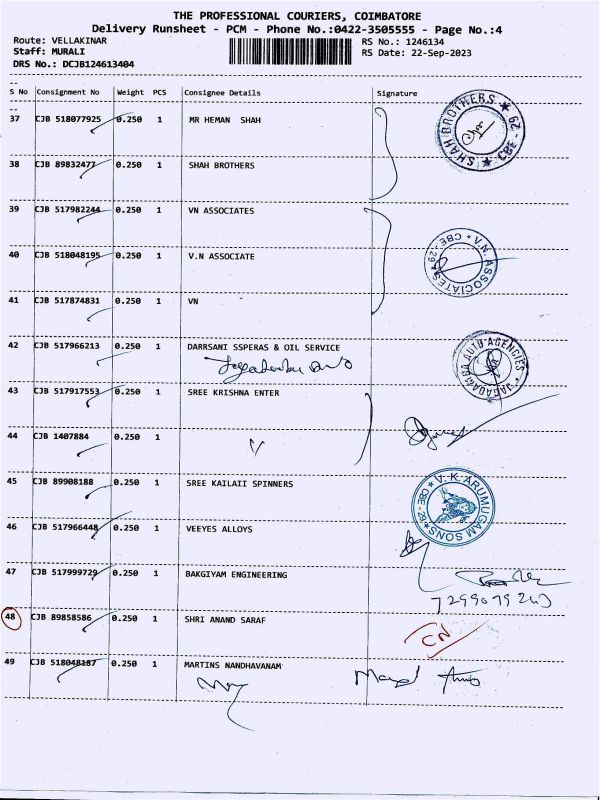 THE PROFESSIONAL COURIERS, COIMBATORE
Delivery Runsheet - PCM - Phone No.:0422-3505555 - Page No.:4
Route: VELLAKINAR RS No.: 1246134
Staff: MURALI RS Date: 22-Sep-2023
DRS No.: DCJB124613404
S No Consignment No Weight PCS Consignee Details Signature
37 CJB 518077925 0.250 1 MR HEMAN SHAH
SHAH BROTHERS ★ CBE - 29 ★
38 CJB 89832477 0.250 1 SHAH BROTHERS
39 CJB 517982244 0.250 1 VN ASSOCIATES
40 CJB 518048195 0.250 1 V.N ASSOCIATE
V.N. ASSOCIATES ★ CBE - 29 ★
41 CJB 517874831 0.250 1 VN
42 CJB 517966213 0.250 1 DARRSANI SSPERAS & OIL SERVICE
JAGADAMBA AUTO AGENCIES
43 CJB 517917553 0.250 1 SREE KRISHNA ENTER
44 CJB 1407884 0.250 1
45 CJB 89908188 0.250 1 SREE KAILAII SPINNERS
V.K. ARUMUGAM SONS ★ CBE - 29 ★
46 CJB 517966448 0.250 1 VEEYES ALLOYS
47 CJB 517999729 0.250 1 BAKGIYAM ENGINEERING
48 CJB 89858586 0.250 1 SHRI ANAND SARAF
CN
49 CJB 518048187 0.250 1 MARTINS NANDHAVANAM